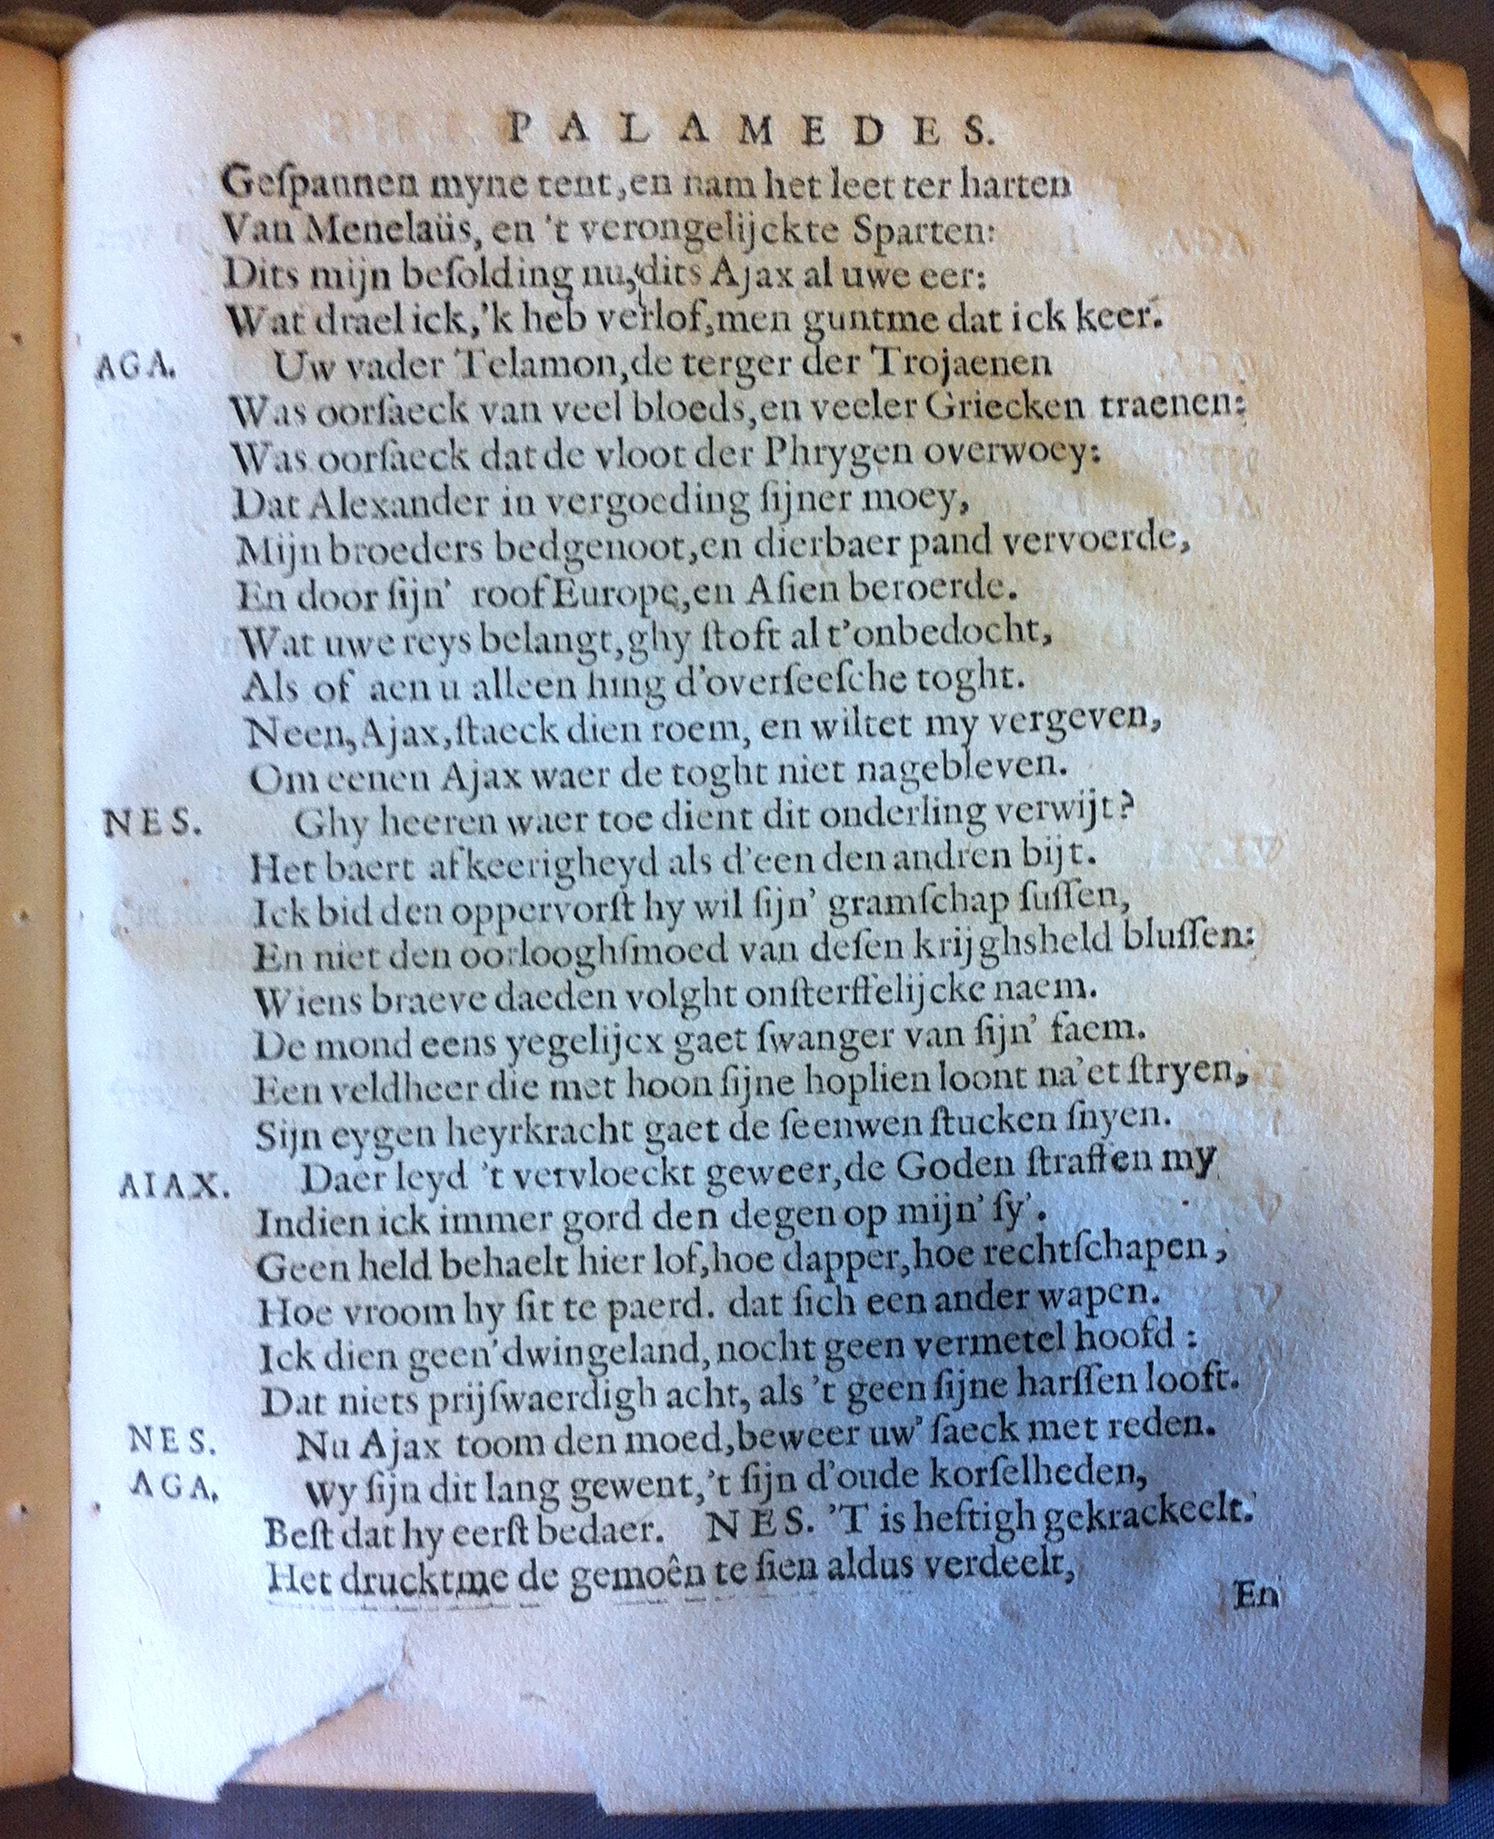 PALAMEDES.
Geſpannen myne tent, en nam het leet ter harten
Van Menelaüs, en 't verongelijckte Sparten:
Dits mijn beſolding nu, dits Ajax al uwe eer:
Wat drael ick, 'k heb verlof, men guntme dat ick keer.
AGA. Uw vader Telamon, de terger der Trojaenen
Was oorſaeck van veel bloeds, en veeler Griecken traenen:
Was oorſaeck dat de vloot der Phrygen overwoey:
Dat Alexander in vergoeding ſijner moey,
Mijn broeders bedgenoot, en dierbaer pand vervoerde,
En door ſijn' roof Europe, en Aſien beroerde.
Wat uwe reys belangt, ghy ſtoft al t'onbedocht,
Als of aen u alleen hing d'overſeeſche toght.
Neen, Ajax, ſtaeck dien roem, en wiltet my vergeven,
Om eenen Ajax waer de toght niet nagebleven.
NES. Ghy heeren waer toe dient dit onderling verwijt?
Het baert afkeerigheyd als d'een den andren bijt.
Ick bid den oppervorſt hy wil ſijn' gramſchap ſuſſen,
En niet den oorlooghſmoed van deſen krijghsheld bluſſen:
Wiens braeve daeden volght onſterffelijcke naem.
De mond eens yegelijcx gaet ſwanger van ſijn' faem.
Een veldheer die met hoon ſijne hoplien loont na'et ſtryen,
Sijn eygen heyrkracht gaet de ſeenwen ſtucken ſnyen.
AIAX. Daer leyd 't vervloeckt geweer, de Goden ſtraffen my
Indien ick immer gord den degen op mijn' ſy'.
Geen held behaelt hier lof, hoe dapper, hoe rechtſchapen,
Hoe vroom hy ſit te paerd. dat ſich een ander wapen.
Ick dien geen' dwingeland, nocht geen vermetel hoofd:
Dat niets prijſwaerdigh acht, als 't geen ſijne harſſen looft.
NES. Nu Ajax toom den moed, beweer uw' ſaeck met reden.
AGA. Wy ſijn dit lang gewent, 't ſijn d'oude korſelheden,
Beſt dat hy eerſt bedaer. NES. 'T is heftigh gekrackeelt.
Het drucktme de gemoên te ſien aldus verdeelt,
En